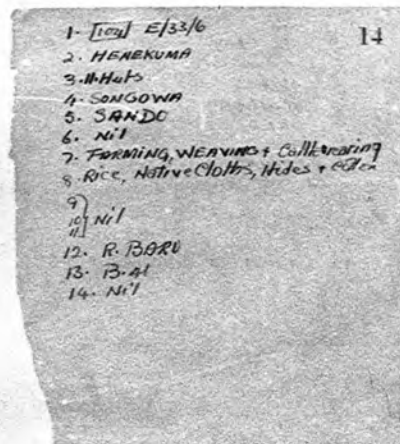 14
1. [104] E/33/6
2. HENEKUMA
3. 11 Huts
4. SONGOWA
5. SANDO
6. Nil
7. FARMING, WEAVING + Cattle rearing
8. Rice, Native Cloths, Hides +
9
10
11 } Nil
12. R. BARU
13. B. Al
14. Nil